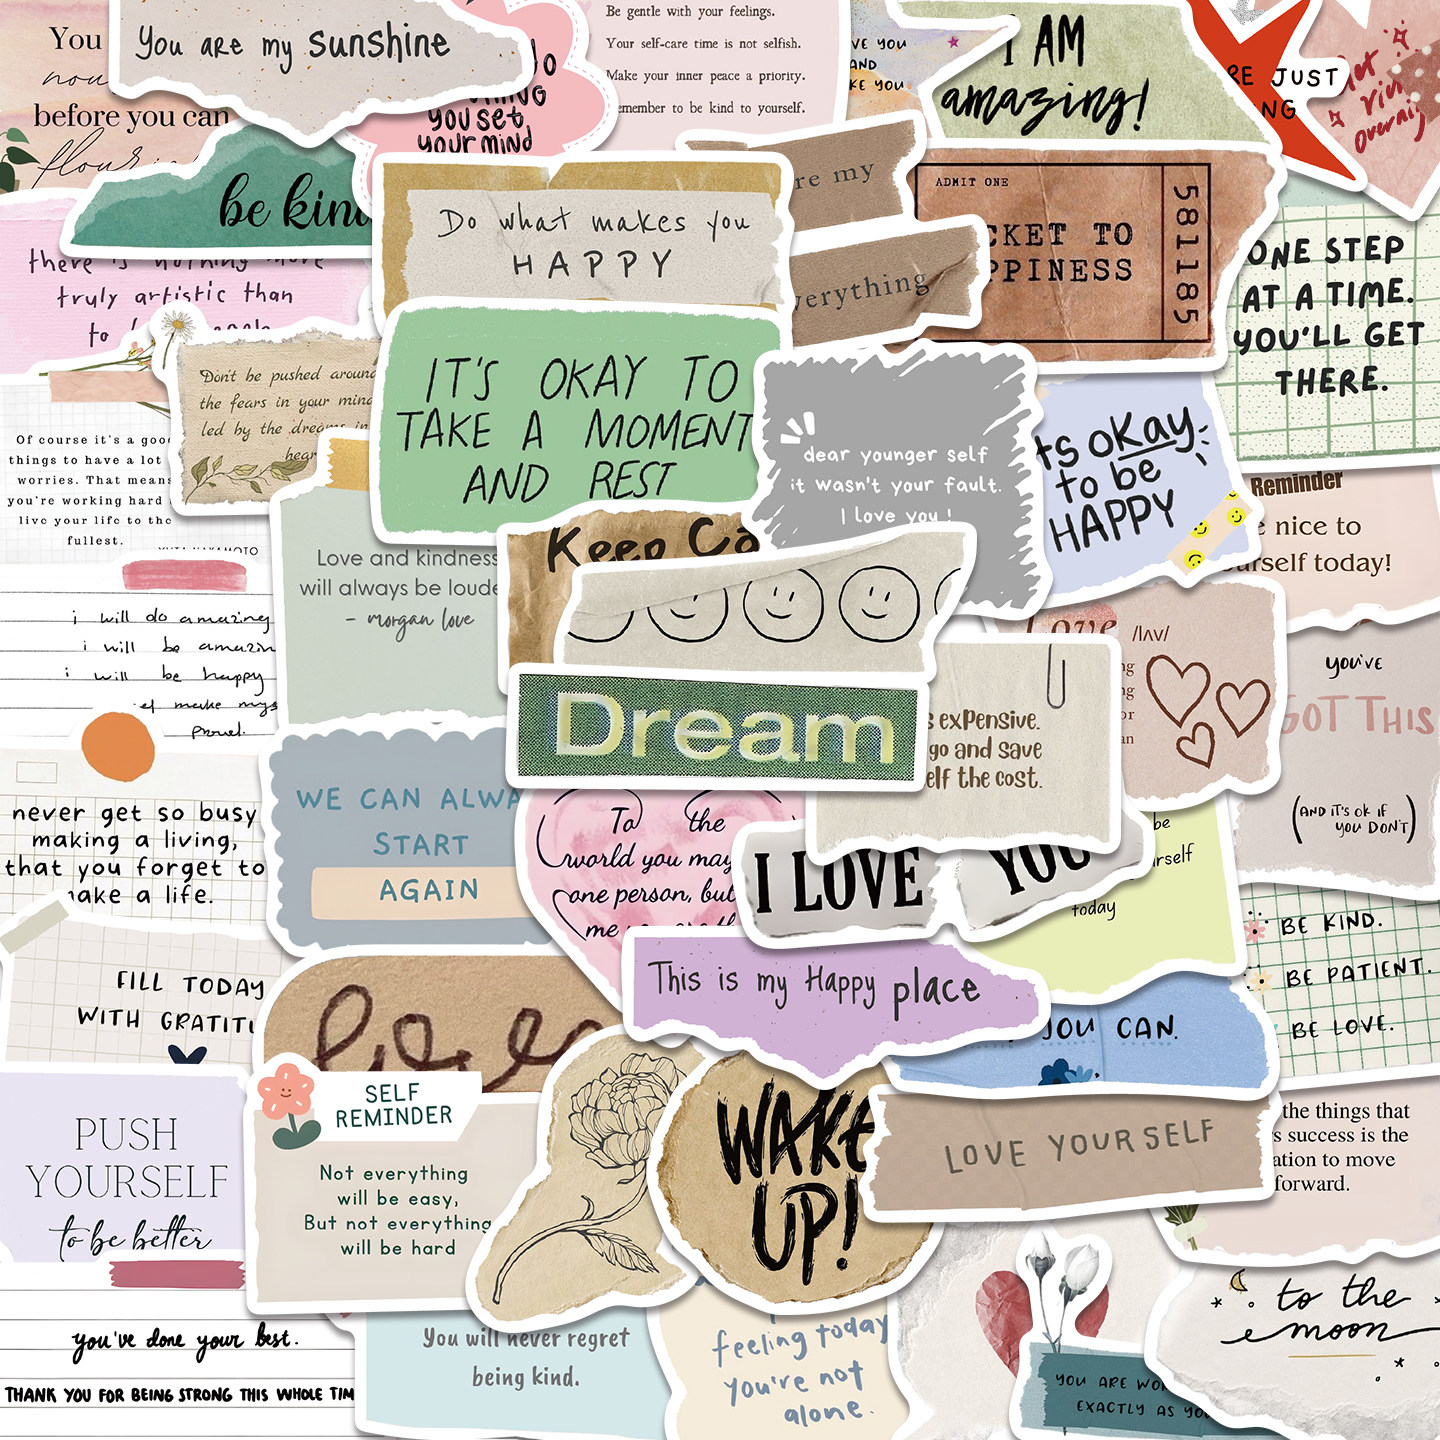 You
now
before you can
flouri
You are my sunshine
do
you set
your mind
Be gentle with your feelings.
Your self-care time is not selfish.
Make your inner peace a priority.
emember to be kind to yourself.
VE YOU
AND
KE YOU
I AM
amazing!
RE JUST
NG
Let
overnig
be kind
there is nothing more
truly artistic than
to
Do what makes you
HAPPY
re my
verything
ADMIT ONE
CKET TO
PPINESS
581185
ONE STEP
AT A TIME.
YOU'LL GET
THERE.
Don't be pushed around
the fears in your mind
led by the dreams in
hear
IT'S OKAY TO
TAKE A MOMENT
AND REST
dear younger self
it wasn't your fault.
I love you!
ts oKay
to be
HAPPY
Reminder
e nice to
urself today!
Of course it's a good
things to have a lot
worries. That means
you're working hard
live your life to the
fullest.
YUTA NAKAMOTO
Love and kindness
will always be loude
- morgan love
Keep Ca
Dream
i will do amazing
i will be amazin
i will be happy
make mys
proud.
Love /lʌv/
ng
ng
or
an
s expensive.
go and save
elf the cost.
you've
GOT THIS
(AND IT'S OK IF
YOU DON'T)
never get so busy
making a living,
that you forget to
make a life.
WE CAN ALWA
START
AGAIN
To the
world you may
one person, but
me you are th
I LOVE
YOU
be
rself
today
FILL TODAY
WITH GRATITU
love
This is my Happy place
YOU CAN.
BE KIND.
BE PATIENT.
BE LOVE.
PUSH
YOURSELF
to be better
SELF
REMINDER
Not everything
will be easy,
But not everything
will be hard
WAKE
UP!
LOVE YOURSELF
the things that
s success is the
ation to move
forward.
you've done your best.
THANK YOU FOR BEING STRONG THIS WHOLE TIM
You will never regret
being kind.
feeling today
you're not
alone.
YOU ARE WO
EXACTLY AS YO
to the
moon